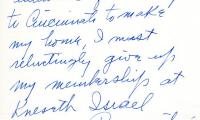 to Cincinnati to make
my home, I must
reluctingly give up
my membership at
Kneseth Israel